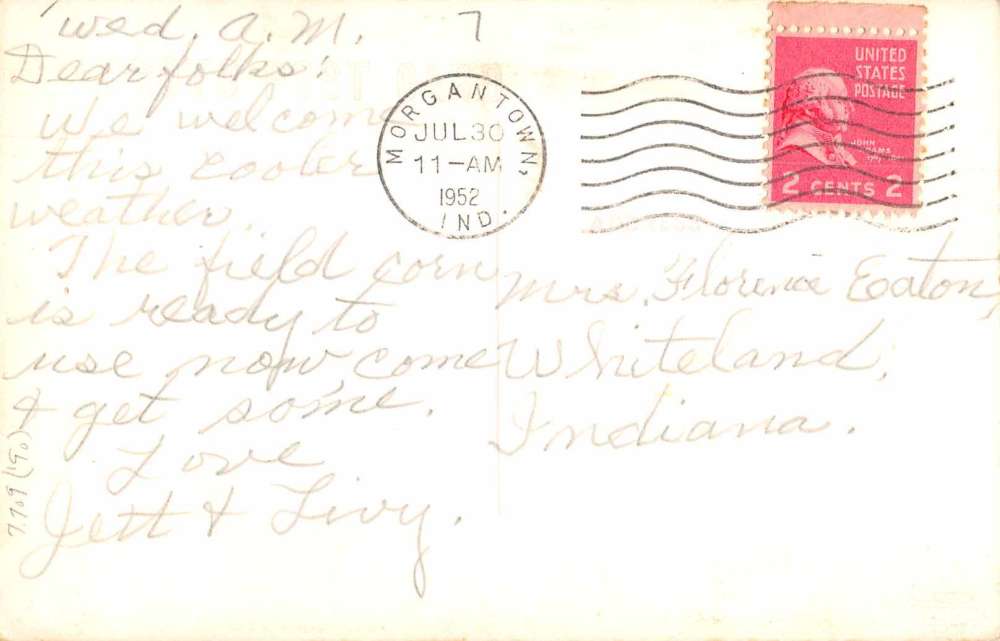 Wed. A.M. 7
Dear folks:
We welcome
this cooler
weather.
The field corn
is ready to
use now, come
& get some.
Love
Jett & Livy.
MORGANTOWN, IND.
JUL 30
11-AM
1952
UNITED
STATES
POSTAGE
JOHN
ADAMS
2 CENTS 2
Mrs. Florence Eaton,
Whiteland,
Indiana.